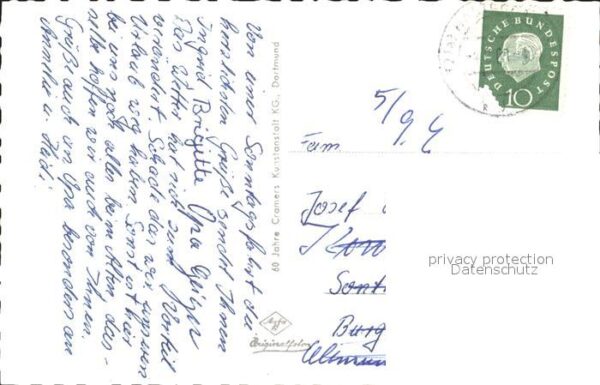 Von einer Sonntagsfahrt die
herzlichsten Grüße sendet Ihnen
Ingrid Brigitte Opa Geiger
Das Wetter hat sich zum Vorteil
verändert. Schade das wir unseren
Urlaub weg haben. Sonst ist hier
bei uns noch alles beim Alten das-
selbe hoffen wir auch von Ihnen.
Grüße auch an Opa besonders an
Annelie u. Hedi
60 Jahre Cramers Kunstanstalt KG., Dortmund
Agfa
Originalfoto
DEUTSCHE BUNDESPOST
10
5/9 4
Fam
Josef
Sont
Burg
privacy protection
Datenschutz